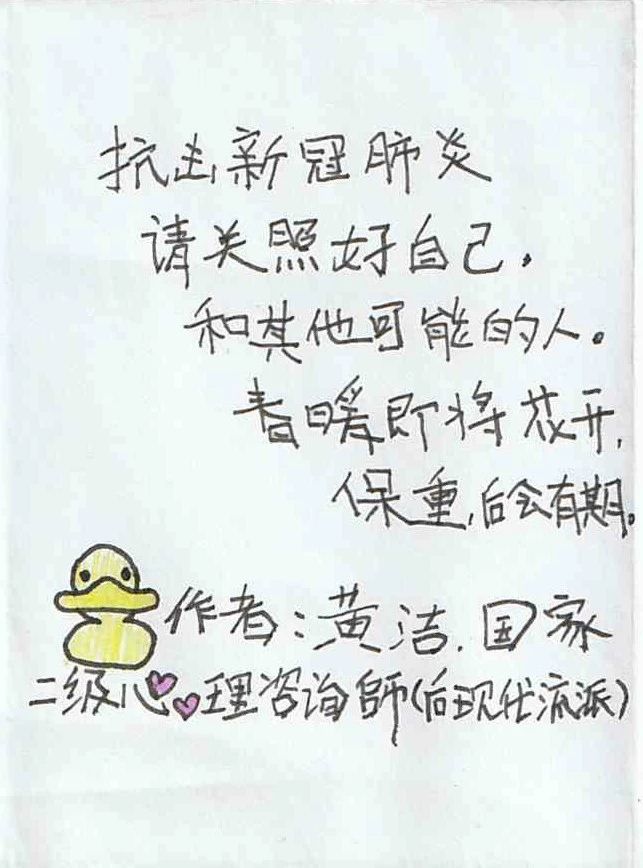 抗击新冠肺炎
请关照好自己,
和其他可能的人。
春暖即将花开,
保重,后会有期。
作者:黄洁.国家
二级心理咨询師(后现代流派)